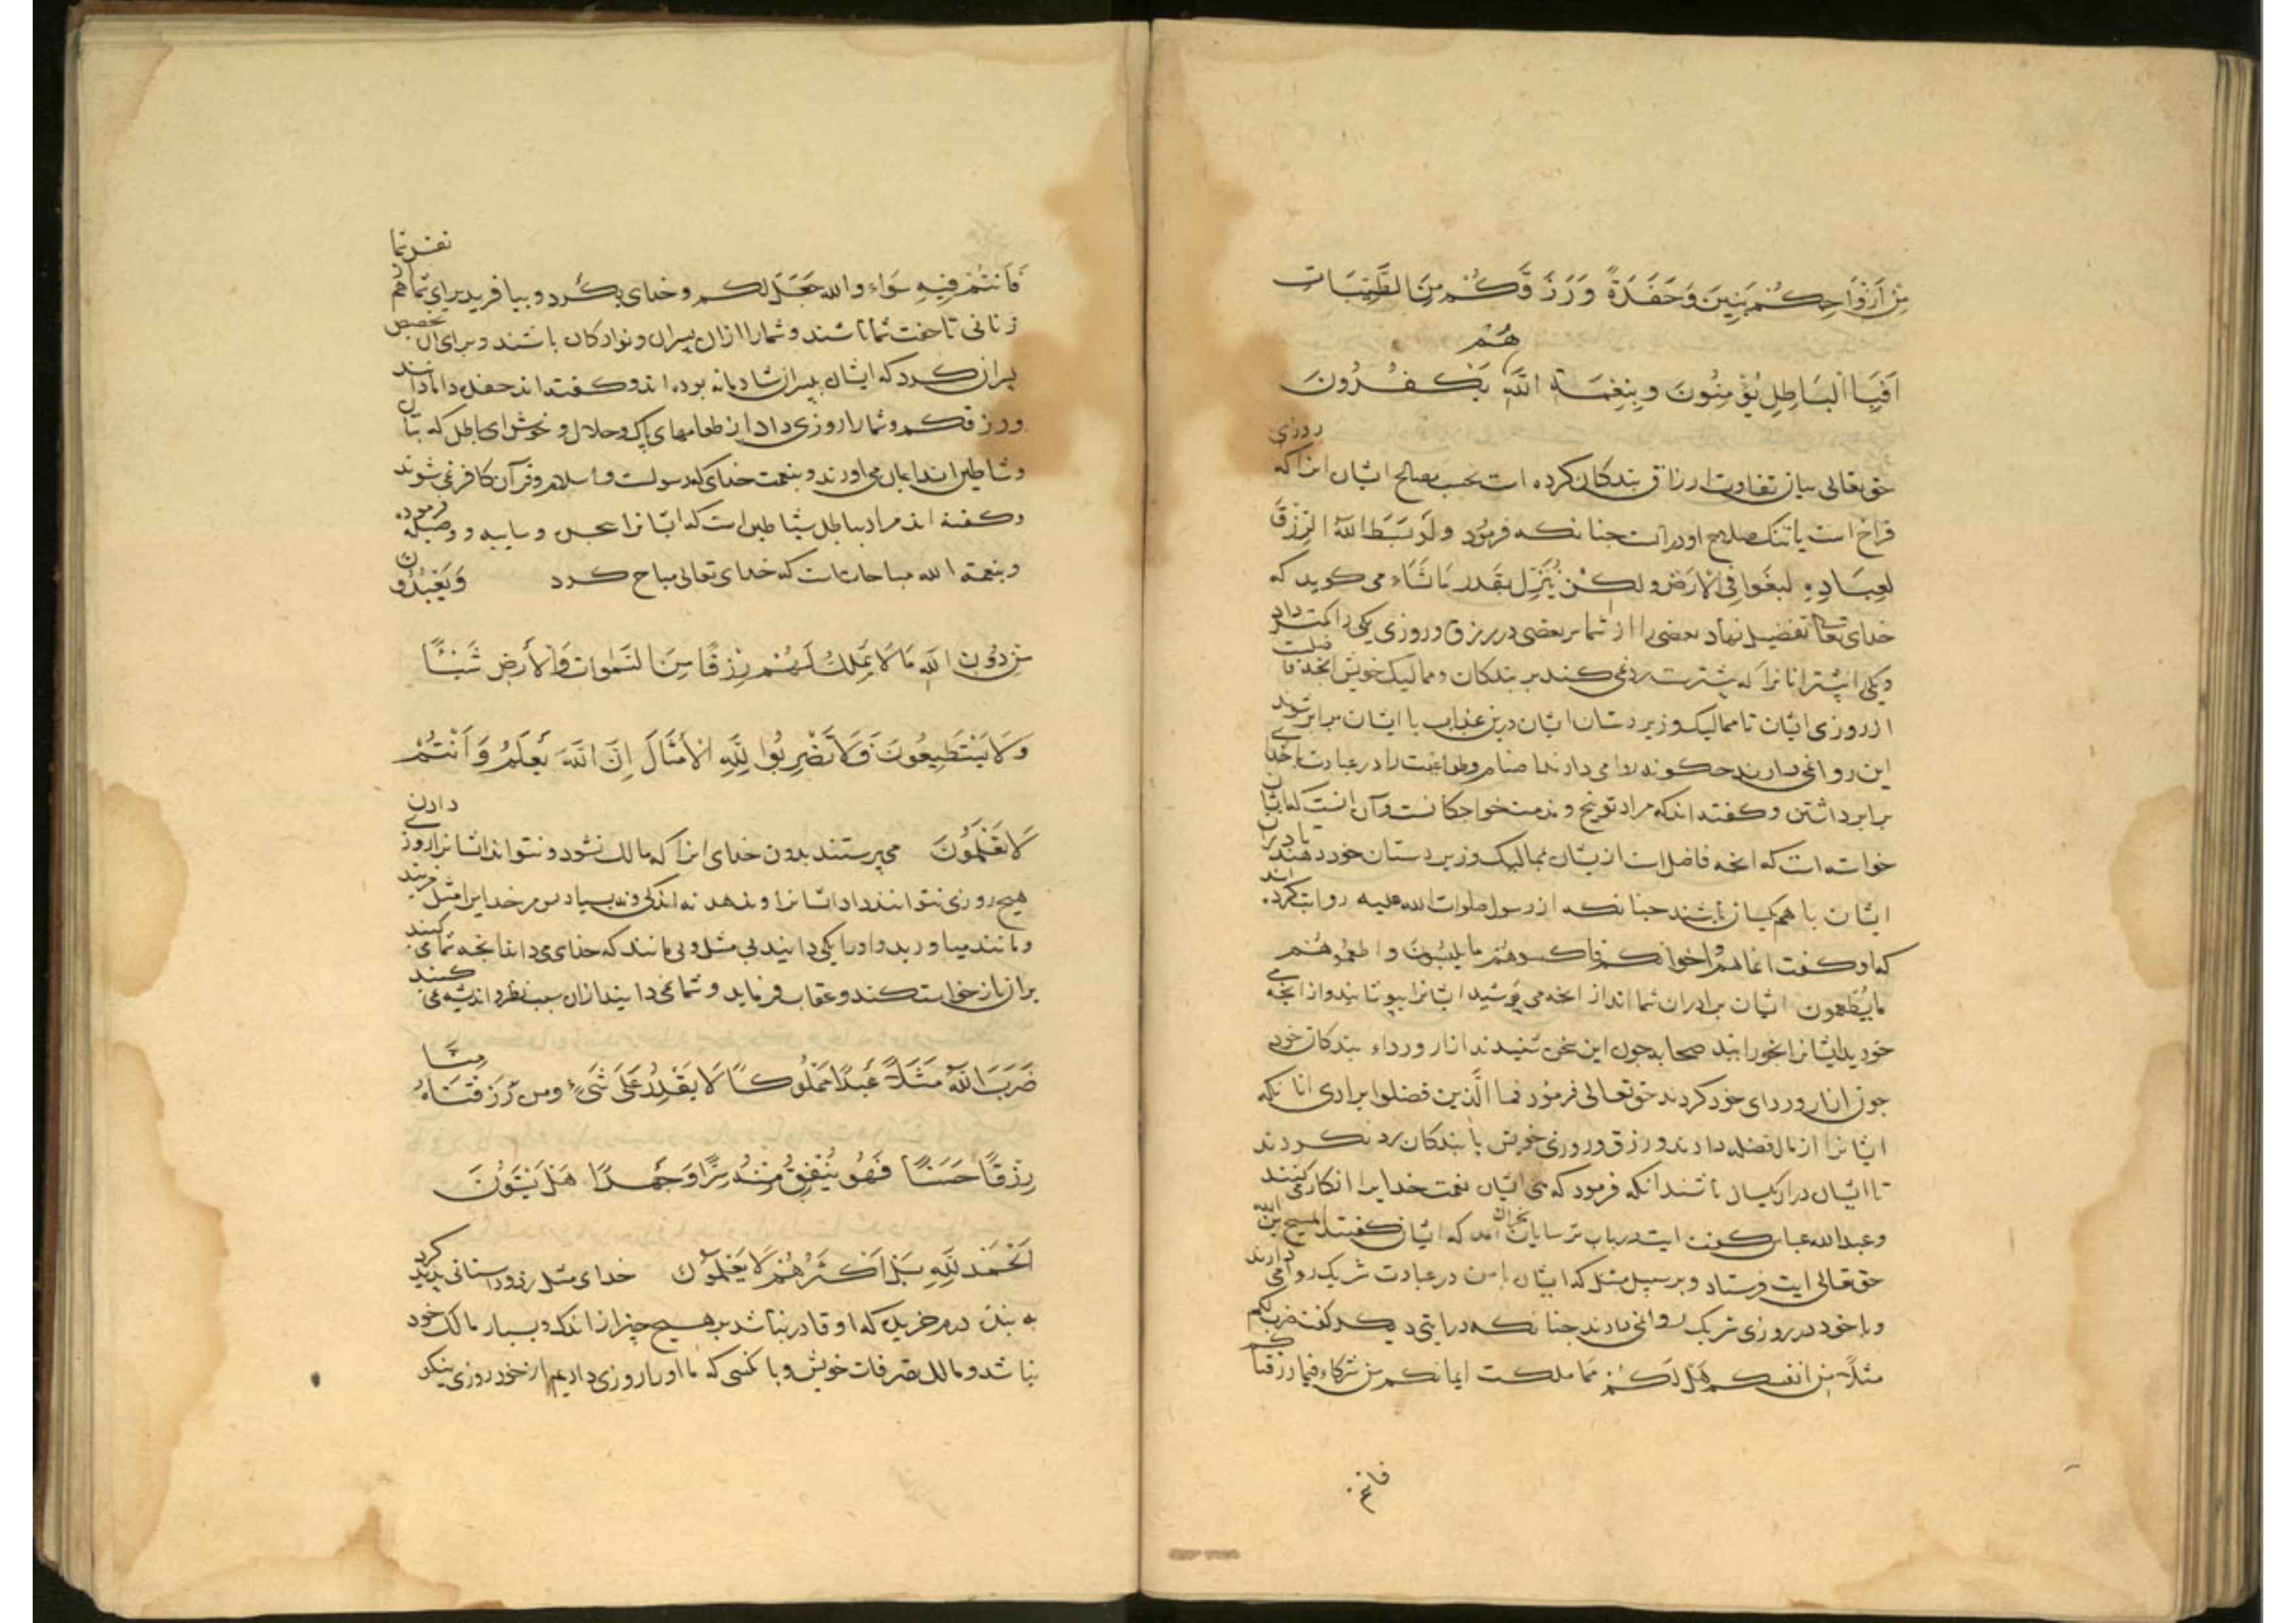 مِنْ اَزْوَاجِكُمْ بَنِينَ وَحَفَدَةً وَرَزَقَكُمْ مِنَ الطَّيِّبَاتِ
اَفَبِالْبَاطِلِ يُؤْمِنُونَ وَبِنِعْمَةِ اللَّهِ هُمْ يَكْفُرُونَ
حق تعالی بیان تفاوت ارزاق بندکان کرده است بحسب مصالح ایشان انرا که روزی
فراخ است یا تنک صلاح او در انست جنانکه فرمود ولو بَسَط اللّه الرِّزْقَ
لِعِبَادِهِ لبغَوا فِی الارْض ولکن یُنَزِّل بقَدر مَا یشَاء می کوید که
خدای تعالی تفضیل نهاد بعضی را از شما بر بعضی در رزق و روزی یکی را کمتر داد
از روزی ایشان تا ممالیک و زیردستان ایشان درین با ایشان برابر شوند
این روا نمی دارند جکونه روا می دارند اصنام و طواغیت را در عبادت با خدای
برابر داشتن و کفته اند که مراد توبیخ و مذمت خواجکانست و آن انست که ایشان
خواسته است که انجه فاضل است از ایشان بممالیک و زیردستان خود دهند تا دران
ایشان باهم یکسان باشند جنانکه از رسول صلوات الله علیه روایت کرده اند
که او کفت انما هم اخوانکم فاکسوهم مما یلبسون و اطعموهم
مما یُطعمون ایشان برادران شمااند از انجه می پوشید ایشانرا بپوشانید و از انجه می
خورید ایشانرا بخورانید صحابه جون این سخن شنیدند ازار و رداء بندکان خود
جون ازار و ردای خود کردند حق تعالی فرمود فما الَّذین فضلوا برادی انانکه
ایشانرا از مال فضله دادند و رزق و روزی خویش با بندکان رد نکردند
تا ایشان دران یکسان باشند انکه فرمود که ای ایشان نعمت خدایرا انکار می کنند
و عبدالله عباس کفت ایت در باب ترسایان نجران آمد که ایشان کفتند المسیح ابن الله
حق تعالی ایت فرستاد و بر سبیل مثل که ایشان با من در عبادت شریک روا می دارند
و با خود در روزی شریک روا نمی دارند جنانکه در ایتی دیکر کفت ضرب لکم
مثلاً من انفسکم هَل لَکُمْ مما ملکت ایمانکم من شرکاء فیما رزقناکم
فانتم
فَاَنتُمْ فِیهِ سَوَاءٌ والله جَعَلَ لکم و خدای بکرد و بیافرید برای شما هم نفس شما
زنانی تا جفت شما باشند و شما را ازان پسران و نوادکان باشند و برای آن تخصیص
ورزقکم و شما را روزی داد از طعامهای پاک و حلال و خوش ای باطل که بتان
و شیاطین اند ایمان می اورند و بنعمت خدای که رسولست و اسلام و قرآن کافر می شوند
وکفته اند مراد بباطل شیاطین است که ایشانرا
و بنعمة الله مباحاتست که خدای تعالی مباح کرد وَیَعْبُدُونَ
مِنْ دُونِ اللَّهِ مَا لَا یَمْلِكُ لَهُمْ رِزْقًا مِنَ السَّمٰوَاتِ وَالْأَرْضِ شَیْئًا
وَلَا یَسْتَطِیعُونَ فَلَا تَضْرِبُوا لِلَّهِ الْأَمْثَالَ إِنَّ اللَّهَ یَعْلَمُ وَأَنْتُمْ
لَا تَعْلَمُونَ می پرستند بدون خدای انرا که مالک نشود و نتواند ایشانرا روزی دادن
هیج روزی نتوانند داد ایشانرا و ندهد نه اندکی و نه بسیار پس مر خدایرا مثل مزنید
و مانند میاورید و او را یکی دانید بی مثل و بی مانند که خدای می داند انجه شما می کنید
بران بازخواست کند و عقاب فرماید و شما نمی دانید ازان سبب نظر و اندیشه نمی کنید
ضَرَبَ اللَّهُ مَثَلًا عَبْدًا مَمْلُوکًا لَا یَقْدِرُ عَلَی شَیْءٍ ومن رَزَقْنَاهُ مِنَّا
رِزْقًا حَسَنًا فَهُوَ یُنْفِقُ مِنْهُ سِرًّا وَجَهْرًا هَلْ یَسْتَوُنَ
اَلْحَمْدُ لِلَّهِ بَلْ اَکْثَرُهُمْ لَا یَعْلَمُونَ خدای مثل زد و داستانی پدید کرد
به بنده درم خرید که او قادر نباشد بر هیج جیز از اندک و بسیار مالک خود
نباشد و مالک تصرفات خویش و با کسی که ما او را روزی دادیم از خود روزی نیکو